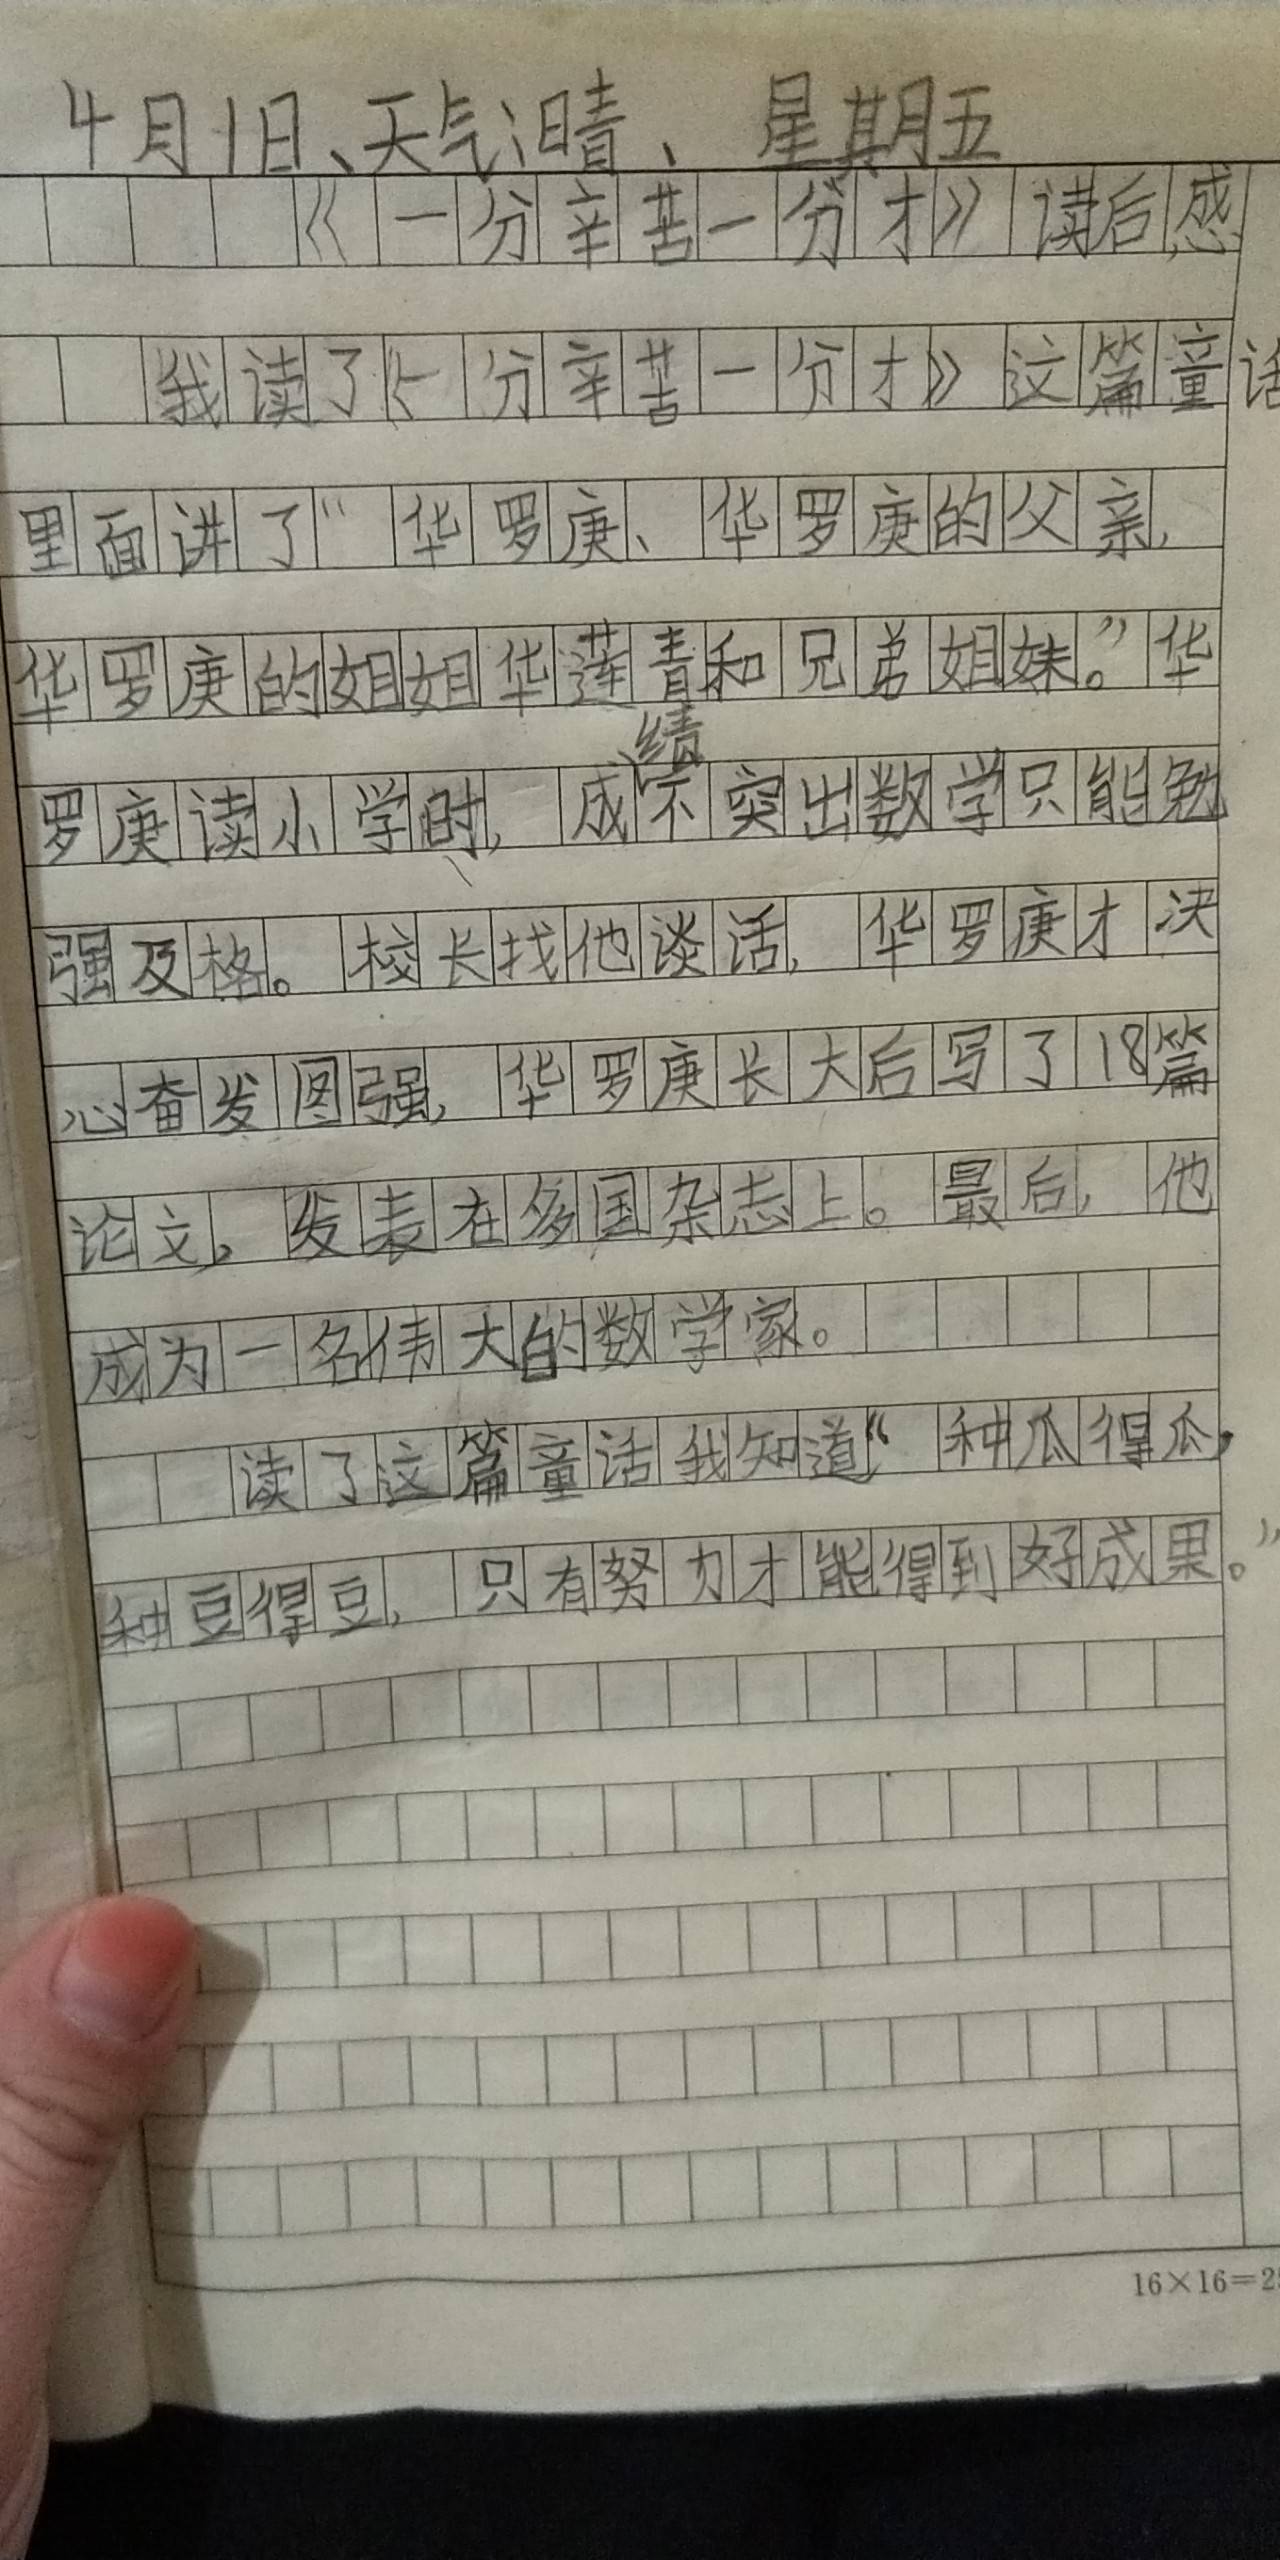 4月1日、天气:晴、星期五
《一分辛苦一分才》读后感
我读了《一分辛苦一分才》这篇童话
里面讲了“华罗庚、华罗庚的父亲,
华罗庚的姐姐华莲青和兄弟姐妹。”华
罗庚读小学时,成绩不突出数学只能勉
强及格。校长找他谈话,华罗庚才决
心奋发图强,华罗庚长大后写了18篇
论文,发表在多国杂志上。最后,他
成为一名伟大的数学家。
读了这篇童话我知道“种瓜得瓜,
种豆得豆,只有努力才能得到好成果。”
16×16=2